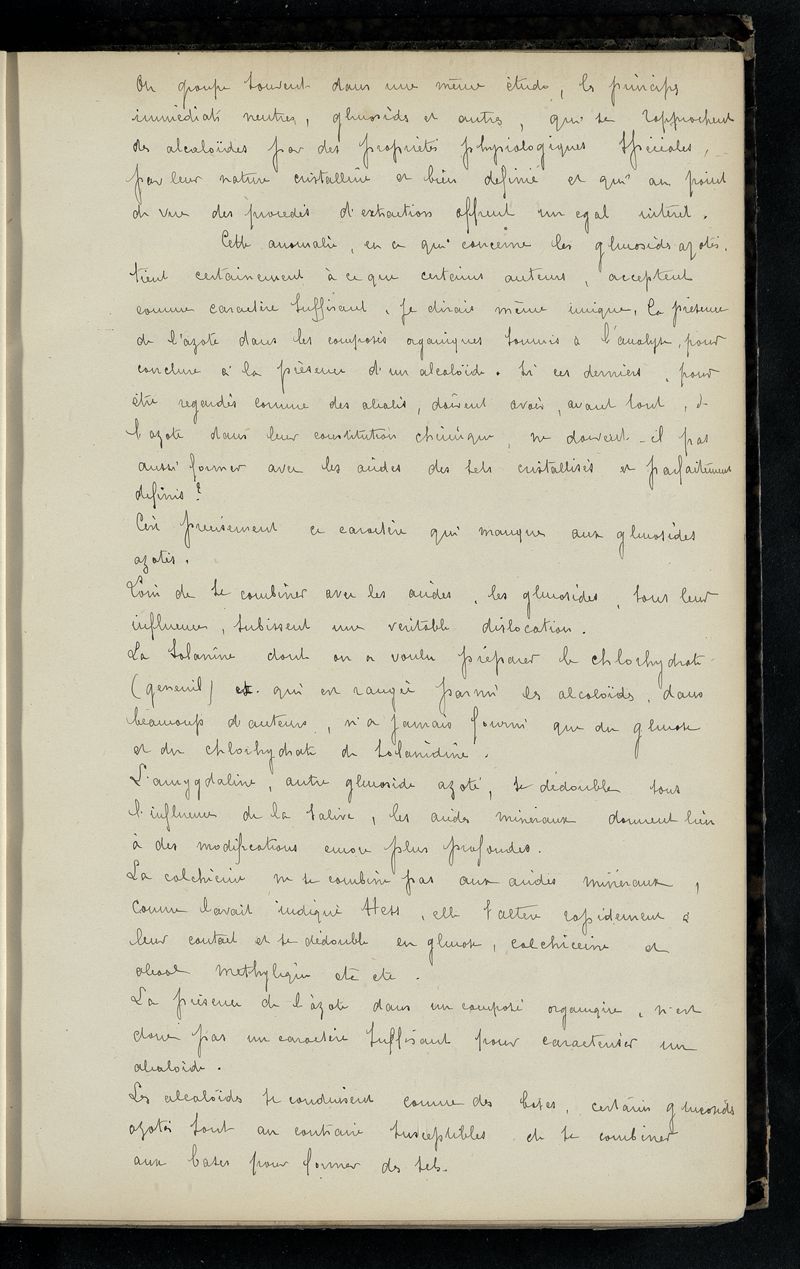 On groupe souvent dans une même étude, les principes
immédiats neutres, glucosides et autres, qui se rapprochent
des alcaloïdes par des propriétés physiologiques spéciales,
par leur nature cristalline et bien définie et qui au point
de vue des procédés d'extraction offrent un egal intérêt.
Cette anomalie, en ce qui concerne les glucosides azotés,
tient certainement à ce que certains auteurs, acceptent
comme caractère suffisant, je dirais même unique, la présence
de l'azote dans les composés organiques soumis à l'analyse, pour
conclure à la présence d'un alcaloïde. Si ces derniers, pour
être regardés comme des alcalis, doivent avoir, avant tout, de
l'azote dans leur constitution chimique, ne doivent-il pas
aussi former avec les acides des sels cristallisés et parfaitement
définis?
C'est précisement ce caractère qui manque aux glucosides
azotés.
Loin de se combiner avec les acides, les glucosides, sous leur
influence, subissent une veritable dislocation.
La solanine dont on a voulu préparer le chlorhydrate
(geneuil) et qui est rangée parmi les alcaloïdes, dans
beaucoup d'auteurs, n'a jamais fourni que du glucose
et du chlorhydrate de solanidine.
L'amygdaline, autre glucoside azoté, se dédouble sous
l'influence de la salive, les acides minéraux donnent lieu
à des modifications encore plus profondes.
La colchicine ne se combine pas aux acides minéraux,
comme l'avait indiqué Hess, elle s'altère rapidement à
leur contact et se dédouble en glucose, colchicéine et
alcool methylique etc etc.
La présence de l'azote dans un composé organique, n'est
donc pas un caractère suffisant pour caracteriser un
alcaloïde.
Les alcaloïdes se conduisent comme des bases, certains glucosides
azotés sont au contraire susceptibles de se combiner
aux bases pour former des sels.